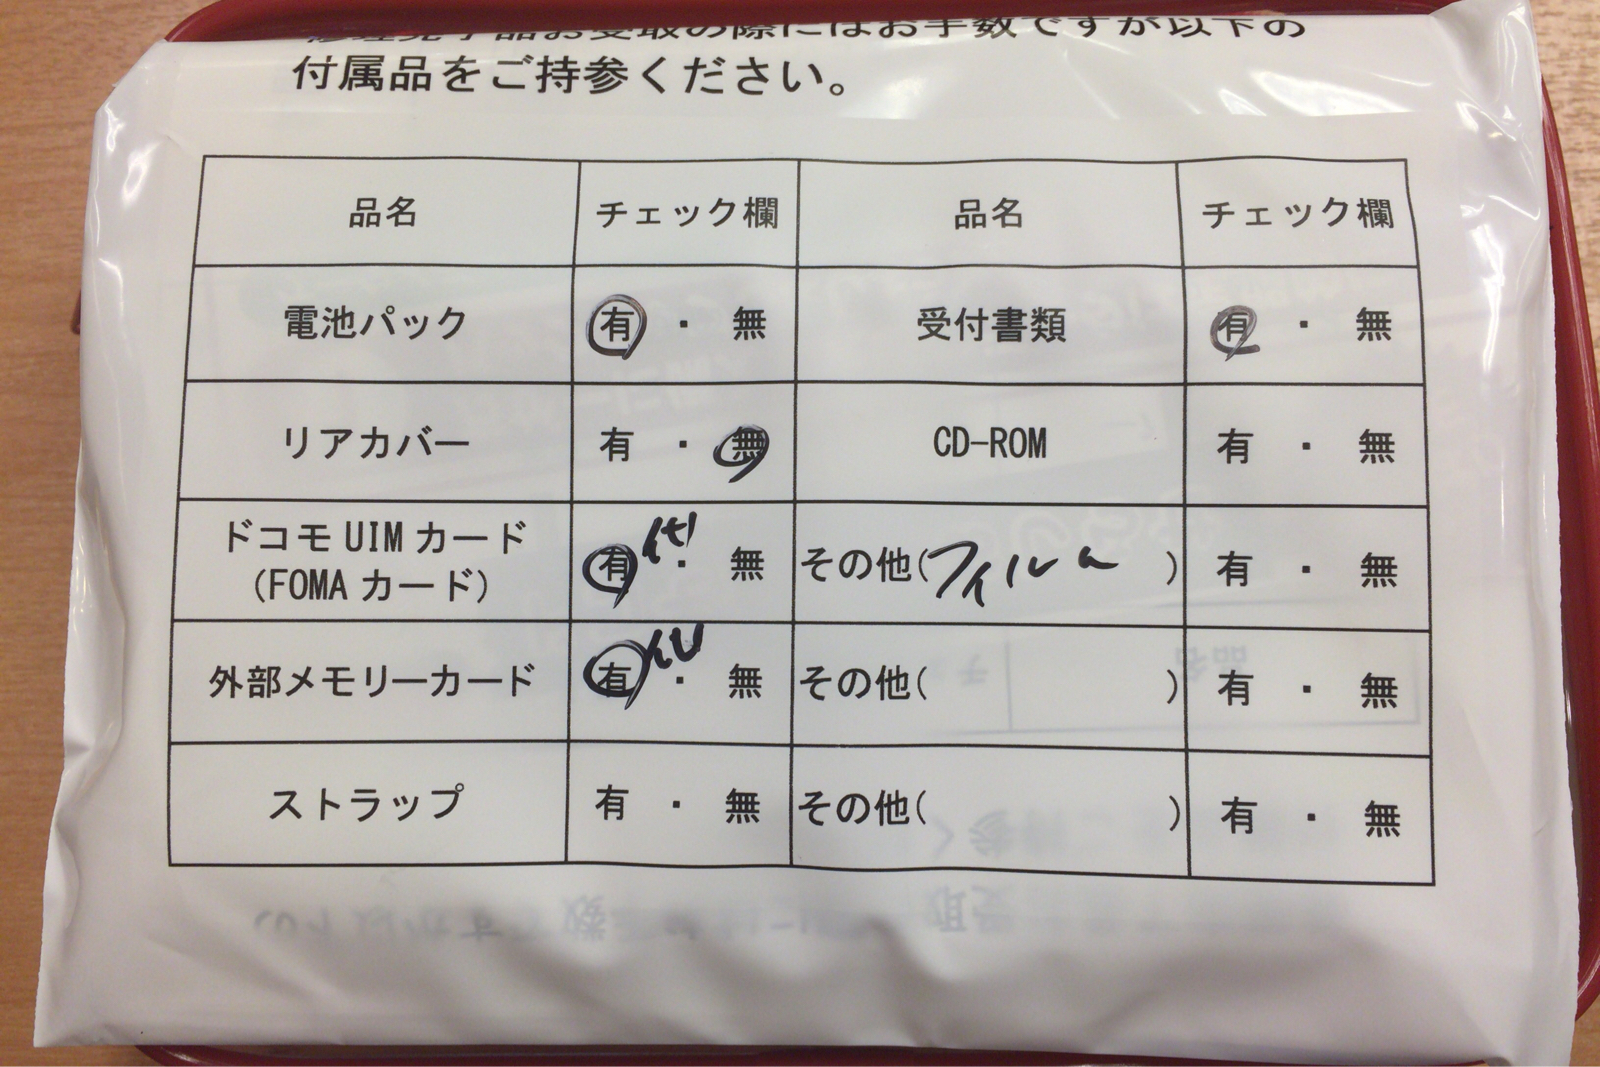 修理完了品お受取の際にはお手数ですが以下の
付属品をご持参ください。
品名 チェック欄 品名 チェック欄
電池パック 有 ・ 無 受付書類 有 ・ 無
リアカバー 有 ・ 無 CD-ROM 有 ・ 無
ドコモUIMカード
(FOMAカード) 有 ・ 無 その他(フィルム ) 有 ・ 無
外部メモリーカード 有 ・ 無 その他( ) 有 ・ 無
ストラップ 有 ・ 無 その他( ) 有 ・ 無